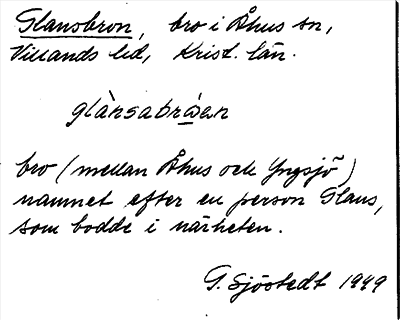 Glansbron, bro i Åhus sn,
Villands hd, Krist. län.
glànsabrώen
bro (mellan Åhus och Yngsjö)
namnet efter en person Glans,
som bodde i närheten.
G. Sjöstedt 1949